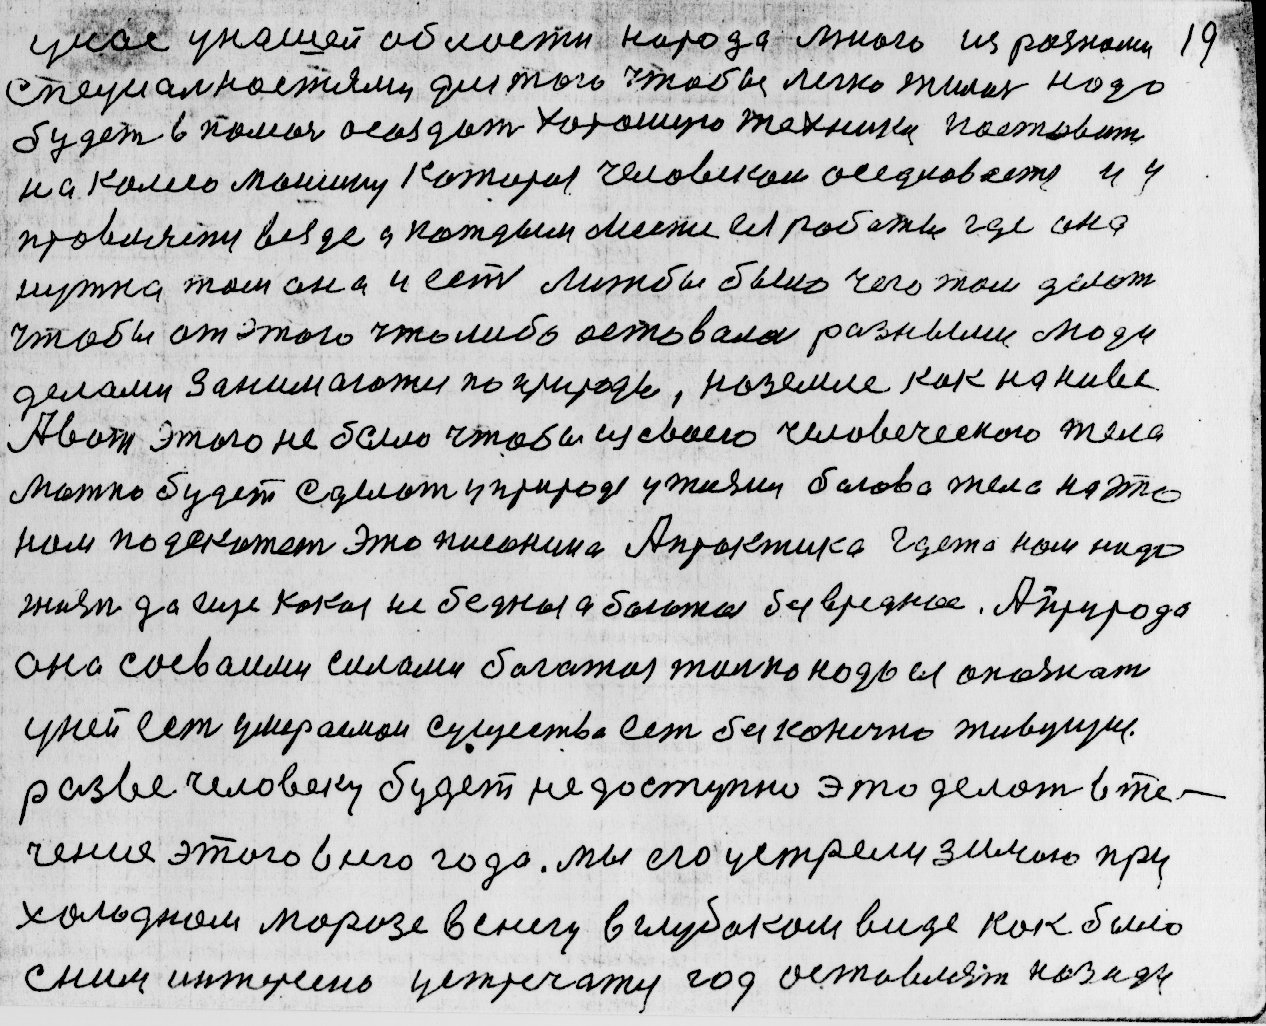 унас унашей области народа много из разноми 19
специалностями для того чтобы легко жилоя надо
будет в помоч осоздат хорошую технику поставит
на колесо машину которая человеком оседловаетя и у
правляети везде укаждым месте ея работы где она
нужна там она и ест лижбы было чего там делат
чтобы от этого что либо оставалоя разными люди
делами занимаютзя по природе, на земле как на ниве
А вот этого не было чтобы из своего человеческого тела
можно будет сделат уприроде ужизни болова тела на это
нам подскажет это писанина А практика где та нам надо
жизн да еще какая не бедная а богатая безвредное. А природа
она соеваими силами багатая толко надо ея опазнат
уней ест умераемаи существа ест безконечно живущие.
разве человеку будет не доступно это делат в те-
чения этого внго года. мы его устрели зимою при
холодном морозе в снегу в глубаком виде как было
сним интересно устречати год оставлят позади